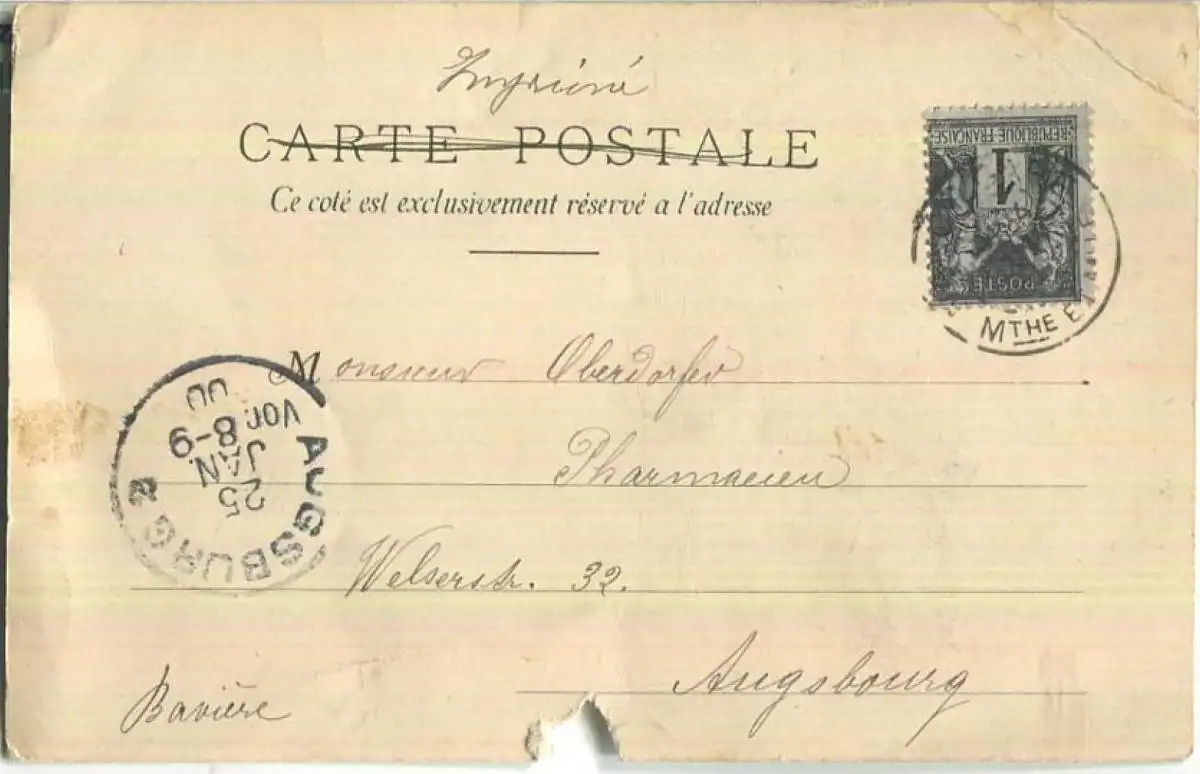 Imprimé
CARTE POSTALE
Ce coté est exclusivement réservé a l'adresse
REPUBLIQUE FRANÇAISE
1
POSTE
MTHE E
Monsieur Oberdorfer
Pharmacien
Welserstr. 32.
Augsbourg
Bavière
AUGSBURG
25
JAN.
Vor. 8-9
00